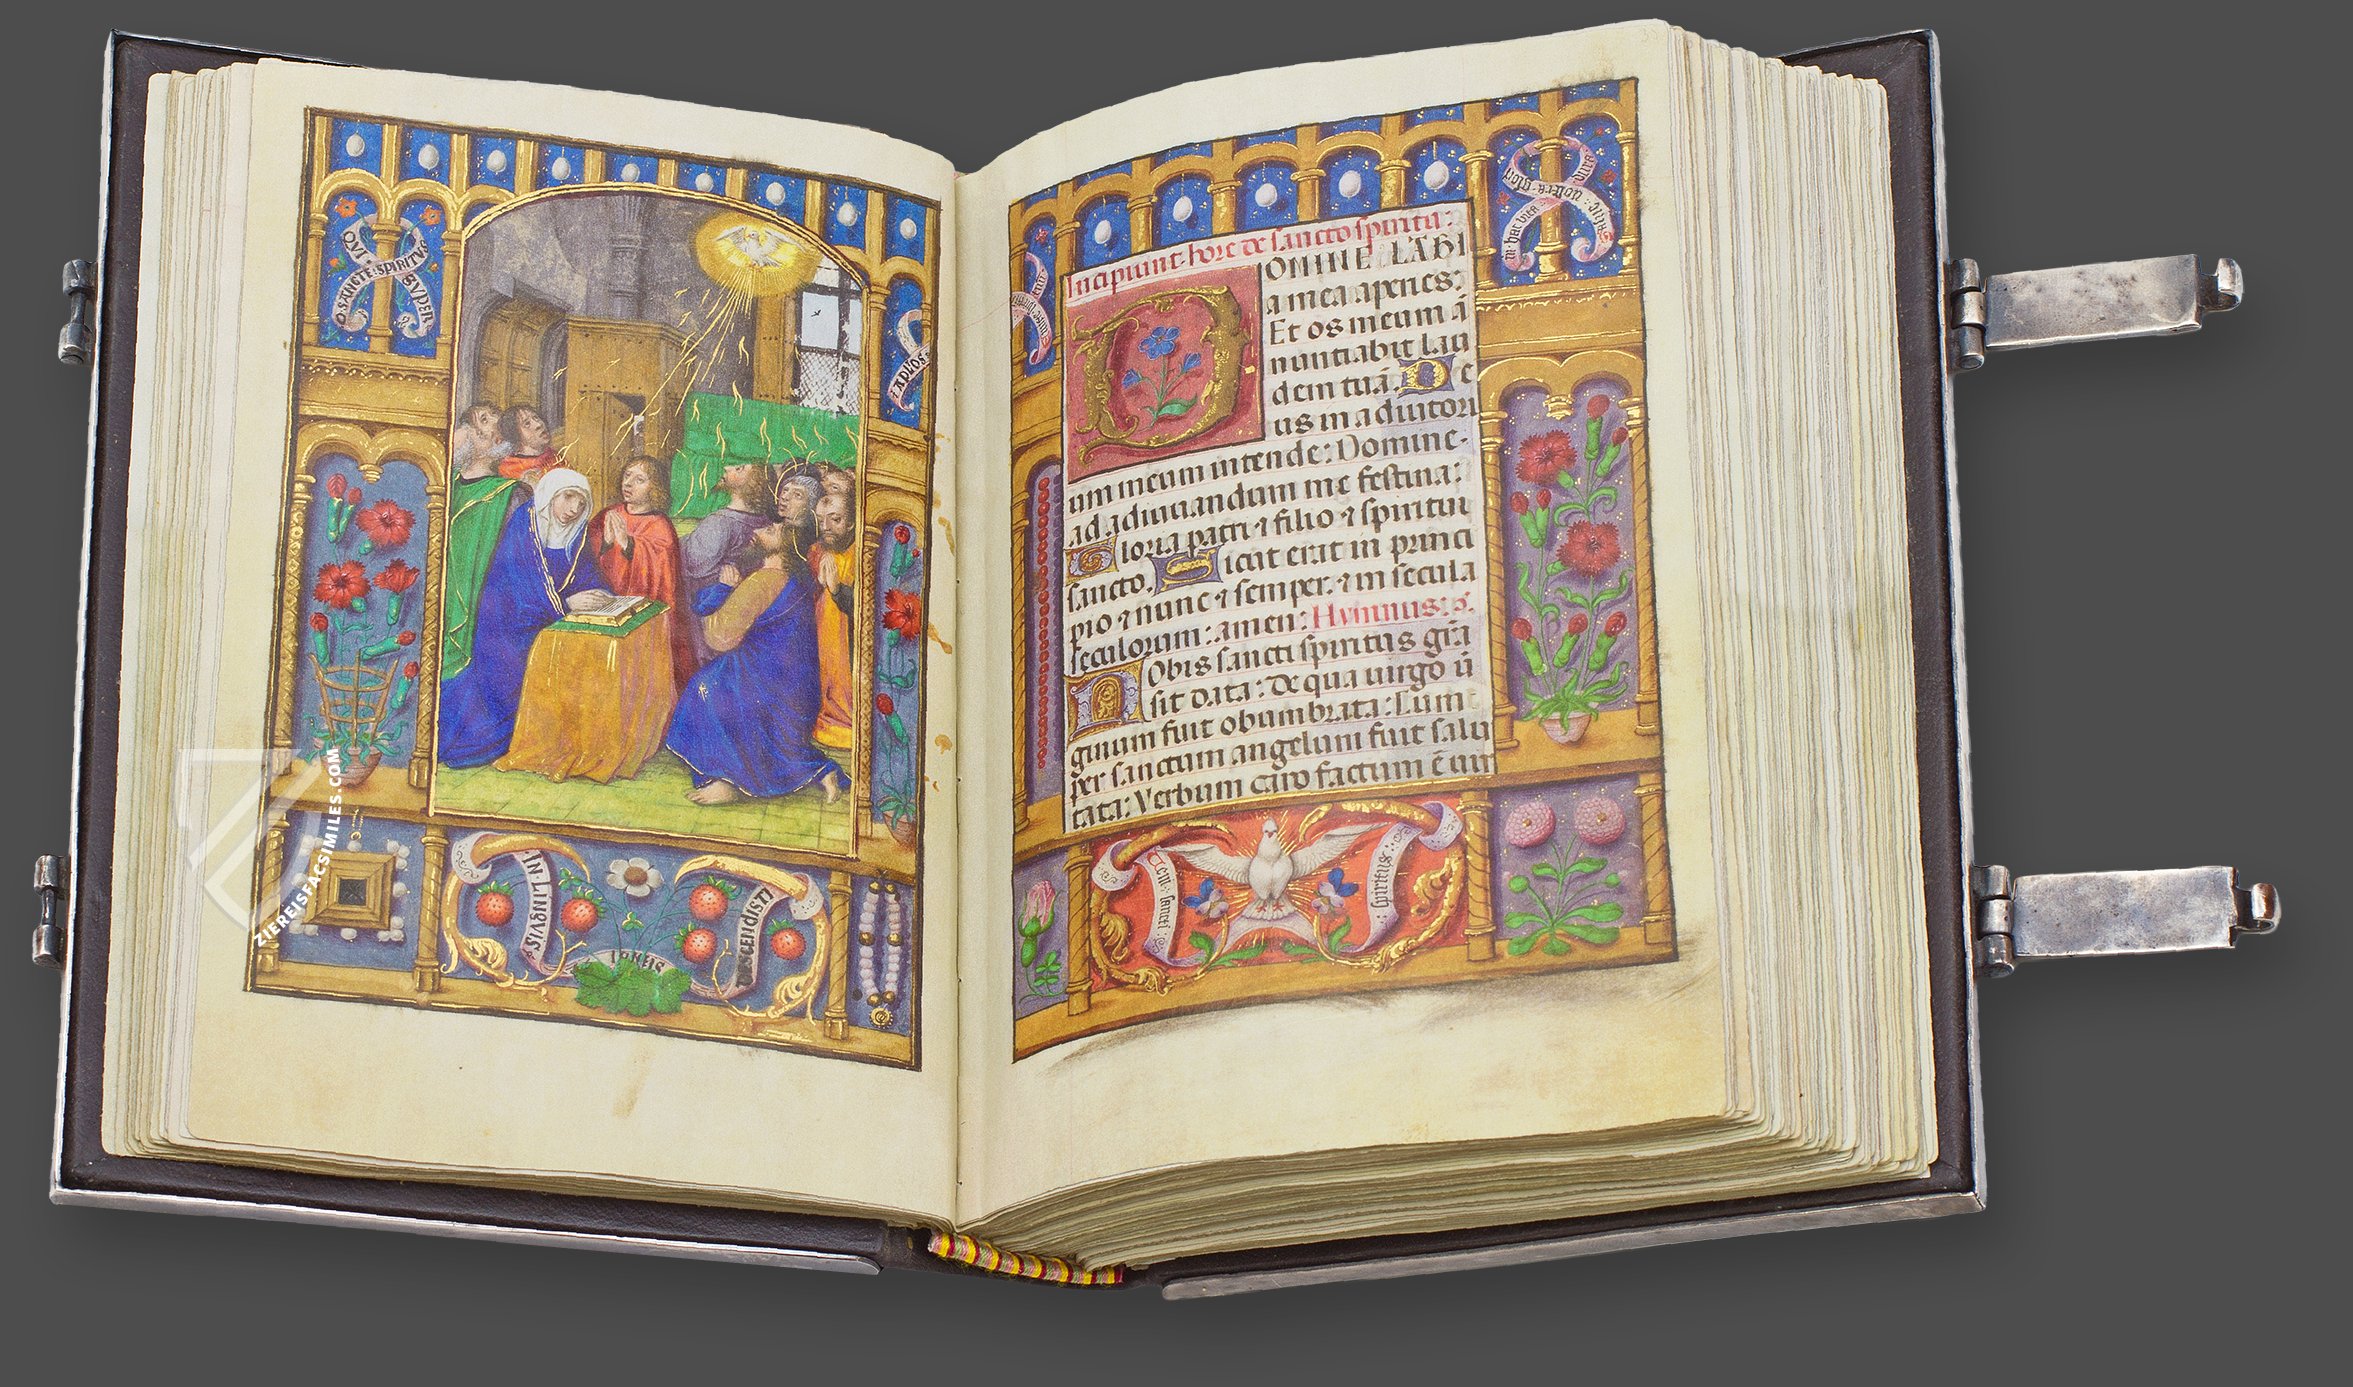 O·SANCTE·SPIRITVS
QVI
SVPER
APLOS
IN·LINGVIS
IGNEIS
DISCENDISTI
Incipiunt·hore de sancto spiritu:
DOMINE LABI
a mea aperies:
Et os meum ā
nuntiabit lau
dem tuā. De
us in adiutori
um meum intende: Domine·
ad adiuuandum me festina:
Gloria patri ⁊ filio ⁊ spiritui
sancto. Sicut erat in princi
pio ⁊ nunc ⁊ semper, ⁊ in secula
seculorum: amen: Hymnus:
Nobis sancti spiritus gr̄a
sit data: De qua uirgo ū
ginum fuit obumbrata: Cum
per sanctum angelum fuit salu
tata: Verbum caro factum ē uir
sancti
spiritus
ZIEREISFACSIMILES.COM